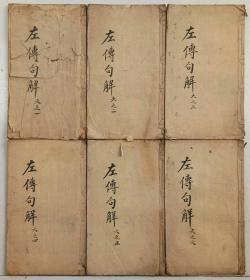 左傳句解 六之一
左傳句解 六之二
左傳句解 六之三
左傳句解 六之四
左傳句解 六之五
左傳句解 六之六